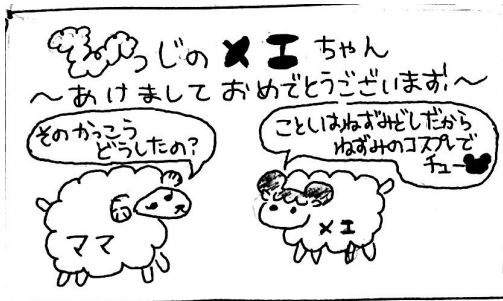 ひつじのメエちゃん
～あけましておめでとうございます！～
そのかっこう
どうしたの？
ことしはねずみどしだから
ねずみのコスプレで
チュー
ママ
メエ